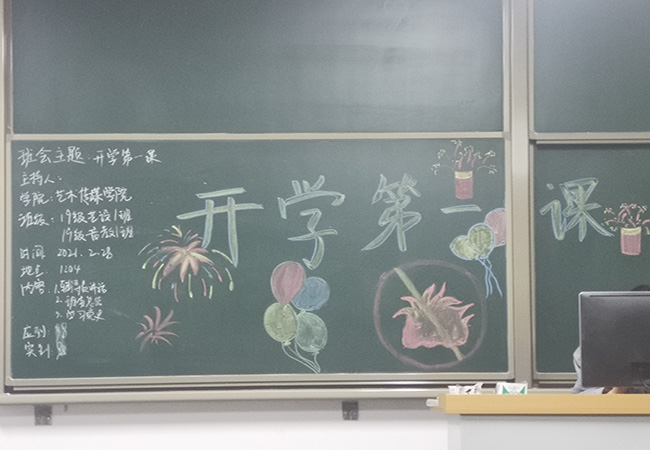 班会主题:开学第一课
主持人:
学院:艺术传媒学院
班级:19级艺设1班
19级音教1班
时间 2021.2.28
地点 1204
内容:1.
2.
3.学习党史
应到:
实到:
开学第一课